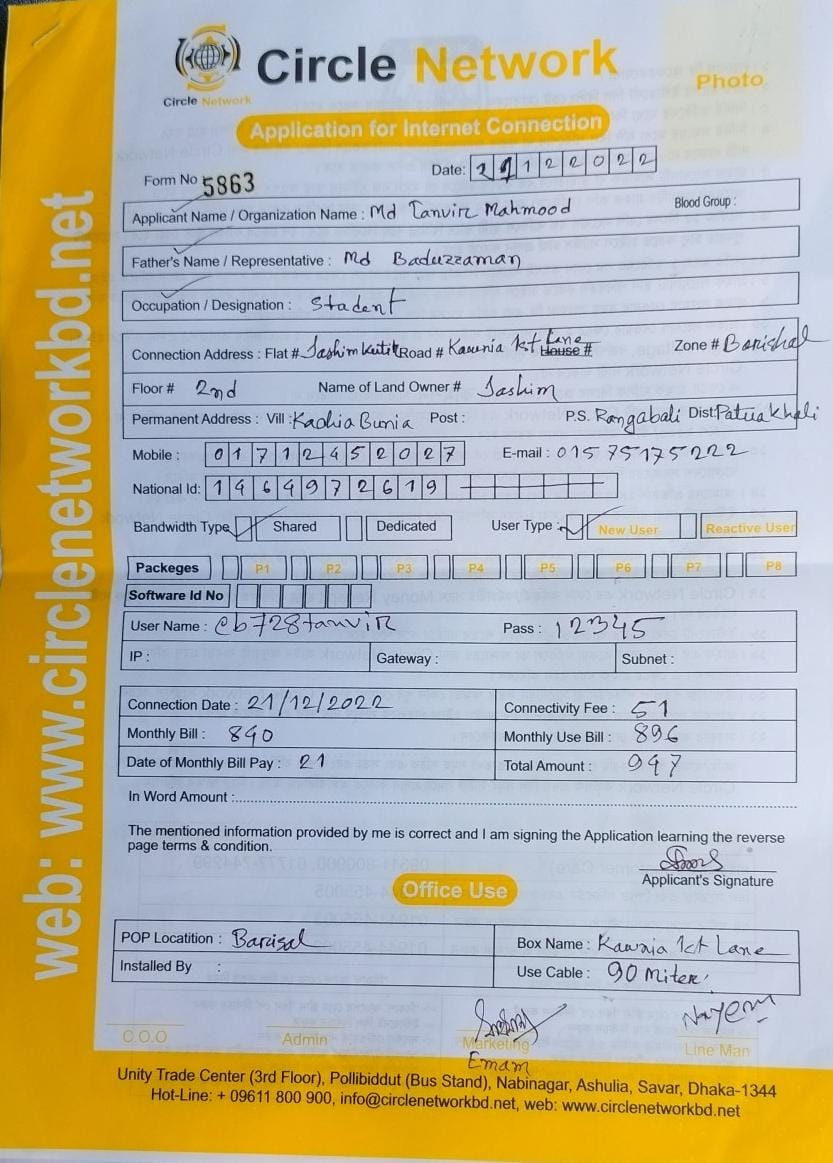 Circle Network
Circle Network
Photo
Application for Internet Connection
Form No 5863
Date: 21122022
Applicant Name / Organization Name : Md Tanvir Mahmood Blood Group :
Father's Name / Representative : Md Baduzzaman
Occupation / Designation : Stadent
Connection Address : Flat # Jashim Kutir Road # Kaunia 1st Lane House # Zone # Barishal
Floor # 2nd Name of Land Owner # Jashim
Permanent Address : Vill : Kachia Bunia Post : P.S. Rangabali Dist: Patuakhali
Mobile : 01712452027 E-mail : 01575175222
National Id: 1464972619
Bandwidth Type Shared Dedicated User Type : New User Reactive User
Packeges P1 P2 P3 P4 P5 P6 P7 P8
Software Id No
User Name : cb728tanvir Pass : 12345
IP : Gateway : Subnet :
Connection Date : 21/12/2022 Connectivity Fee : 51
Monthly Bill : 890 Monthly Use Bill : 896
Date of Monthly Bill Pay : 21 Total Amount : 947
In Word Amount :
The mentioned information provided by me is correct and I am signing the Application learning the reverse
page terms & condition.
Applicant's Signature
Office Use
POP Locatition : Barisal Box Name : Kaunia 1ct Lane
Installed By : Use Cable : 90 Miter
C.O.O Admin Marketing Line Man
Nayem
Emam
Unity Trade Center (3rd Floor), Pollibiddut (Bus Stand), Nabinagar, Ashulia, Savar, Dhaka-1344
Hot-Line: + 09611 800 900, info@circlenetworkbd.net, web: www.circlenetworkbd.net
web: www.circlenetworkbd.net